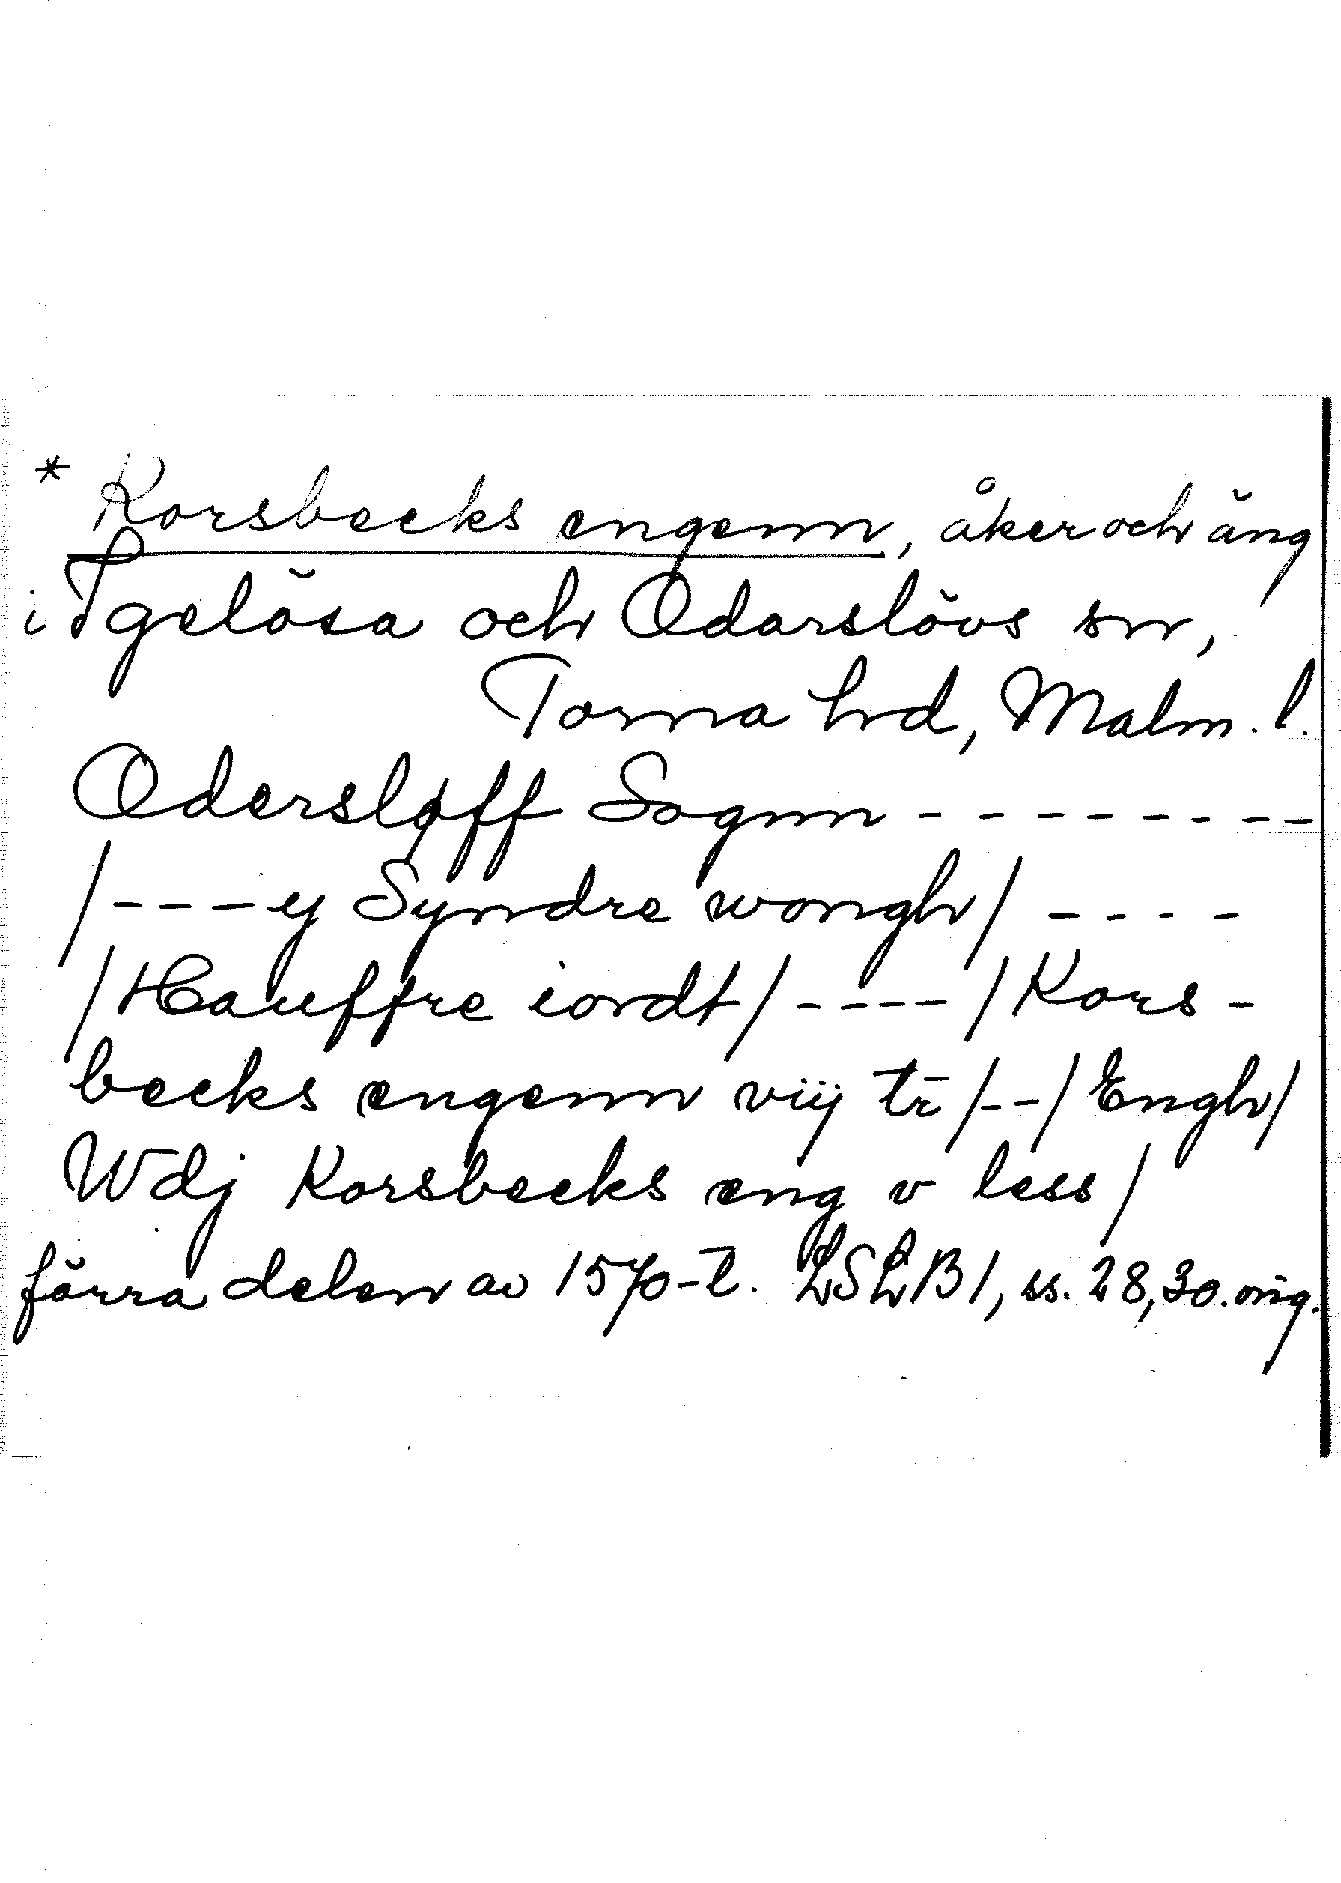 * Korsbecks engenn, åker och äng
i Igelösa och Odarslövs snr,
Torna hrd, Malm. l.
Odersløff Sognn ---------
/---- ij Syndre wongh/ ----
/Hauffre iordt/----/Kors-
becks engenn viij tr̄/--/Engh/
Wdj Korsbecks eng v less/
förra delen av 1570-t. LSLB1, ss. 28,30. orig.